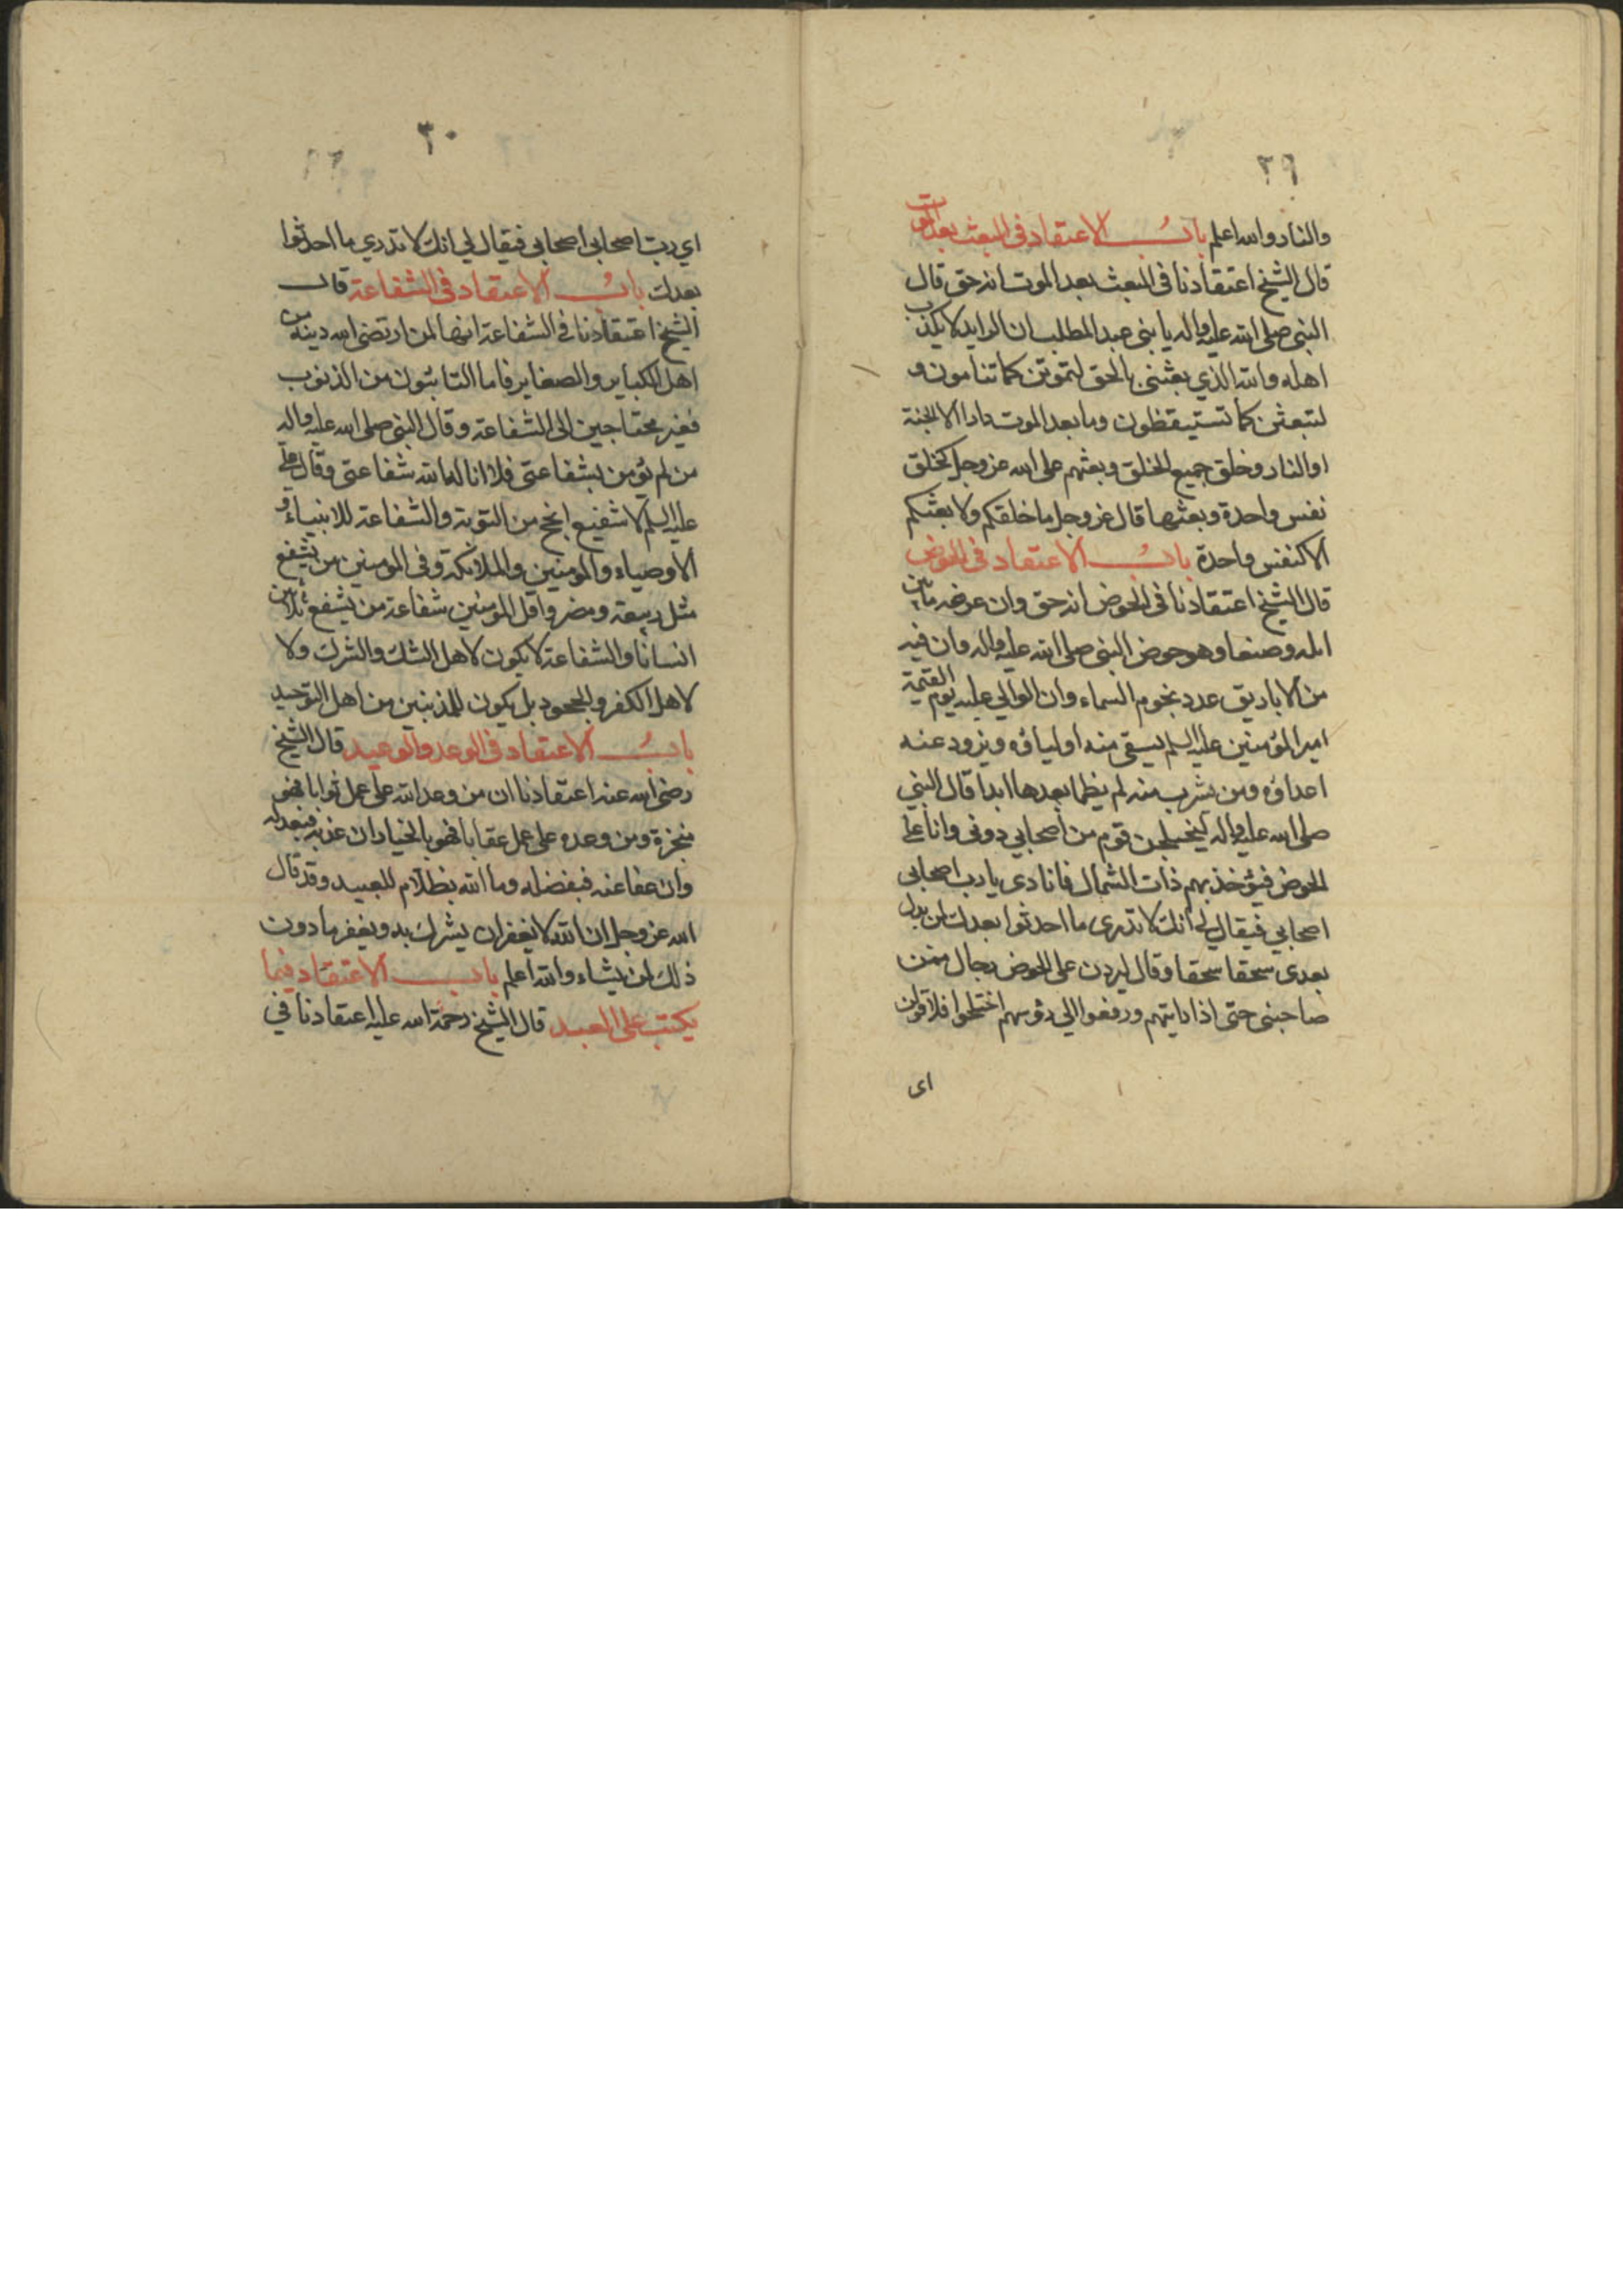 ٢٩
والنار والله اعلم باب الاعتقاد في البعث بعد الموت
قال الشيخ اعتقادنا في البعث بعد الموت انه حق قال
النبي صلى الله عليه واله يا بني عبد المطلب ان الرايد لا يكذب
اهله والله الذي بعثني بالحق لتموتن كما تنامون و
لتبعثن كما تستيقظون وما بعد الموت دارا الا الجنة
او النار وخلق جميع الخلق وبعثهم على الله عز وجل كخلق
نفس واحدة وبعثها قال عز وجل ما خلقكم ولا بعثكم
الا كنفس واحدة باب الاعتقاد في الحوض
قال الشيخ اعتقادنا في الحوض انه حق وان عرضه ما بين
ايله وصنعا وهو حوض النبي صلى الله عليه واله وان فيه
من الاباريق عدد نجوم السماء وان الوالي عليه يوم القيمة
امير المؤمنين عليه السلم يسقي منه اولياؤه ويزود عنه
اعداؤه ومن يشرب منه لم يظما بعدها ابدا قال النبي
صلى الله عليه واله ليختلجن قوم من اصحابي دوني وانا على
الحوض فيؤخذ بهم ذات الشمال فانادي يا رب اصحابي
اصحابي فيقال لي انك لا تدري ما احدثوا بعدك لمن بدل
بعدي سحقا سحقا وقال ليردن على الحوض رجال ممن
صاحبني حتى اذا رايتهم ورفعوا الي رؤسهم اختلجوا فلاقولن
اى
٣٠
اي رب اصحابي اصحابي فيقال لي انك لا تدري ما احدثوا
بعدك باب الاعتقاد في الشفاعة قال
الشيخ اعتقادنا في الشفاعة انها لمن ارتضى الله دينه من
اهل الكباير والصغاير فاما التائبون من الذنوب
فغير محتاجين الى الشفاعة وقال النبي صلى الله عليه واله
من لم يؤمن بشفاعتي فلا اناله الله شفاعتي وقال علي
عليه السلم لا شفيع انجح من التوبة والشفاعة للانبياء و
الاوصياء والمومنين والملائكة وفي المومنين من يشفع
مثل ربيعة ومضر واقل المومنين شفاعة من يشفع ثلاثين
انسانا والشفاعة لا يكون لاهل الشك والشرك ولا
لاهل الكفر والجحود بل يكون للمذنبين من اهل التوحيد
باب الاعتقاد في الوعد والوعيد قال الشيخ
رضي الله عنه اعتقادنا ان من وعد الله على عمل ثوابا فهو
منجزة ومن وعده على عمل عقابا فهو بالخيار ان عذبه فبعدله
وان عفا عنه فبفضله وما الله بظلام للعبيد وقد قال
الله عز وجل ان الله لا يغفر ان يشرك به ويغفر ما دون
ذلك لمن يشاء والله اعلم باب الاعتقاد فيما
يكتب على العبد قال الشيخ رحمة الله عليه اعتقادنا في